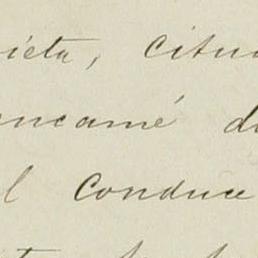 ieta, citu
ncamé d
l conduce